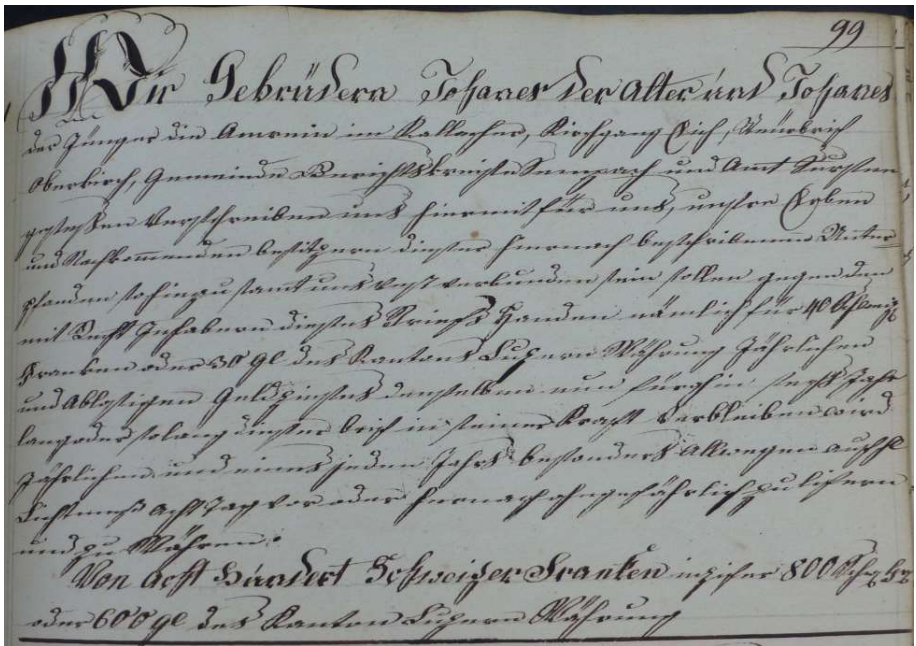 99
Wir Gebrüdern Johanes der Alter und Johanes
der Jünger die Amrein im Kallacher, Kirchgang Eich,
Oberkirch, Gemeinde Gerichtskreiste Sempach und Amt Surstee
gesteßen Verschreiben uns hiermit für uns, unstre Erben
und Nachkommenden besitzern dieser hiernach beschribenene Unter
pfanden so hinzu samt uns vest verbunden sein sollen gegen den
mit Recht Inhabern dieses Briefs Handen nämlich für 40 Schweiz
Franken oder 30 gl des Kantons Luzern Währung Jährlichen
und Ablösigen Geldzinses denselben nun fürohin sechs Jahr
lang oder solang dieser brief in seiner Kraft verbleiben wird
Jährlichen und eines jeden Jahrs besonders Allwegen auf hl
Lichtmeß acht Tag vor oder hernach ohngefährlich zu lifern
und zu Währen.
Von Acht Hundert Schweizer Franken in zifer 800 Schwz Frk
oder 600 gl des Kanton Luzern Währung